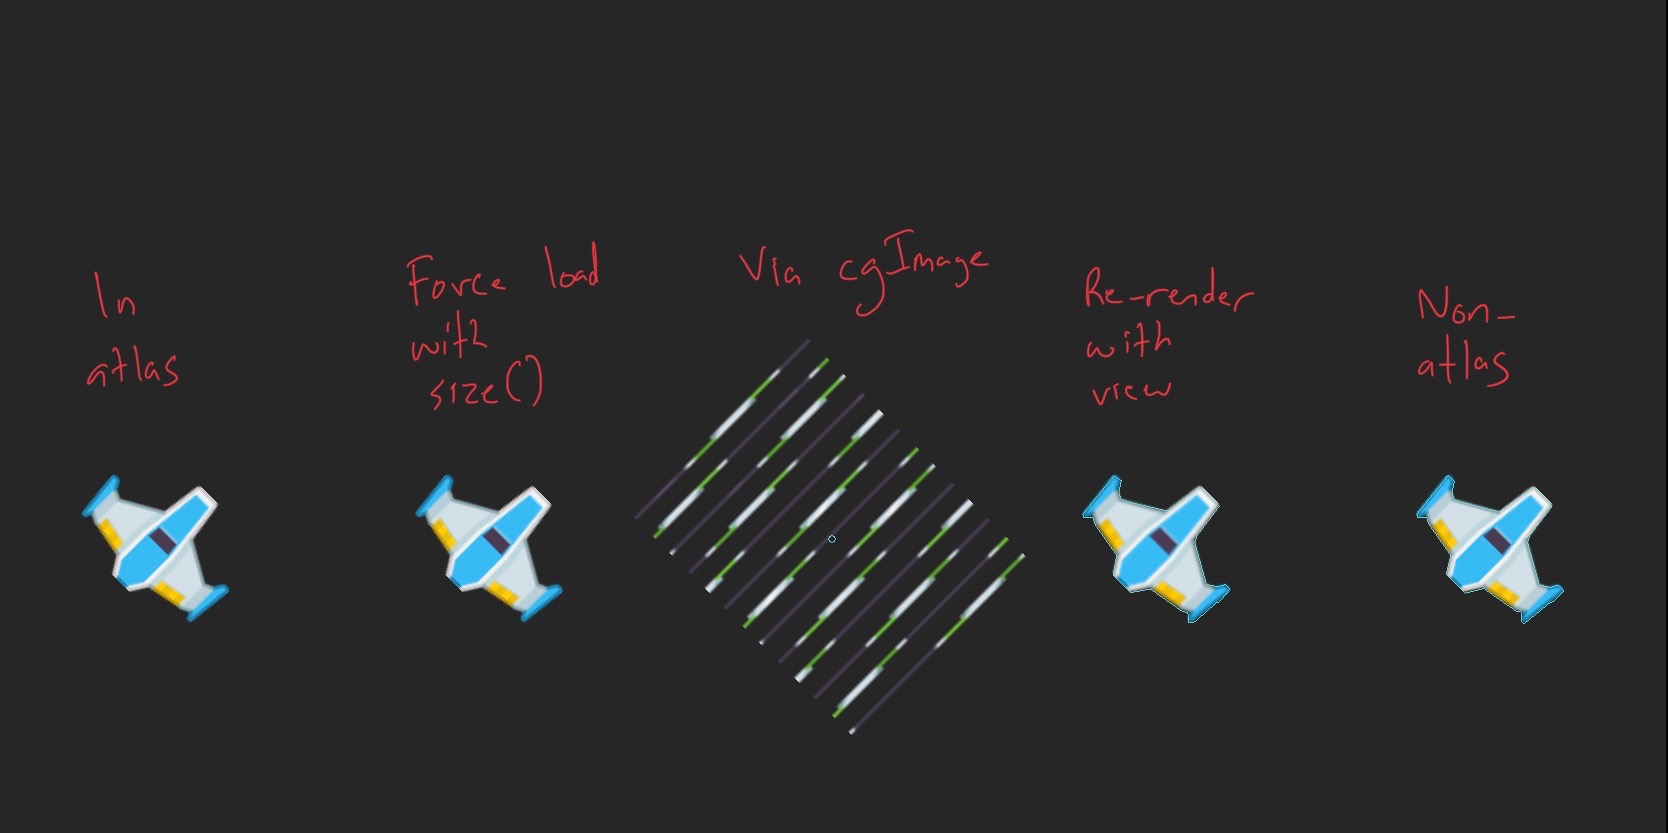 In
atlas
Force load
with
size()
Via cgImage
Re-render
with
view
Non-
atlas